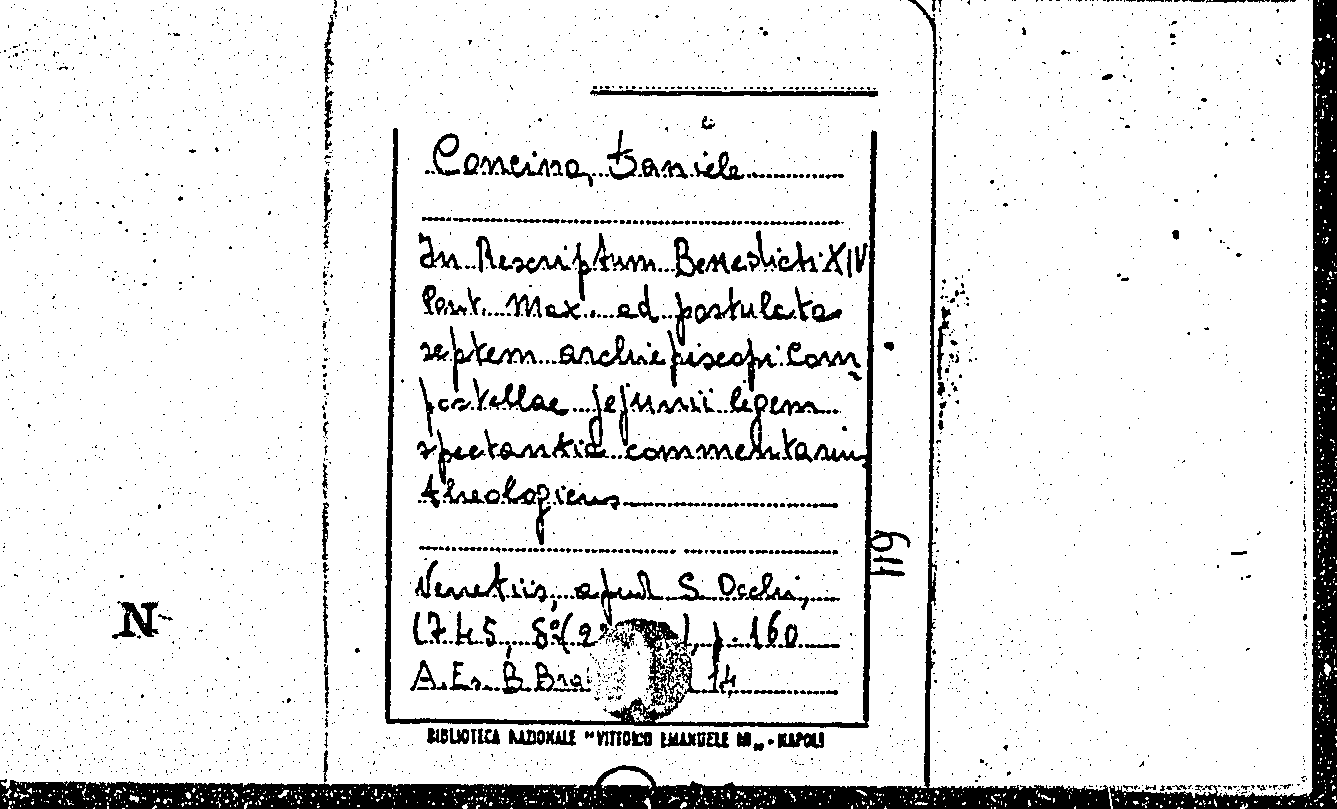 Concina, Daniele
In Rescriptum Benedicti XIV
Pont. Max. ad postulata
septem archiepiscopi Com
postellae jejunii legem
spectantia commentarius
theologicus
Venetiis, apud S. Occhi,
1745, 8º( ), p. 160
A. Es. B. 14
BIBLIOTECA NAZIONALE "VITTORIO EMANUELE III„ - NAPOLI
119
N